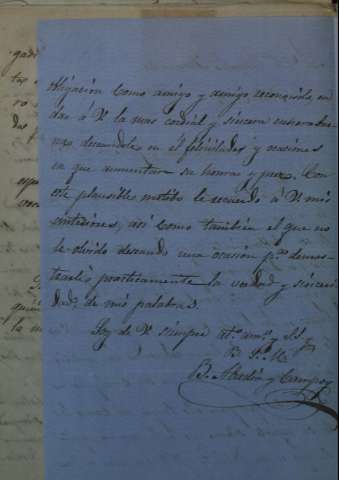 obligación como amigo y amigo reconocido, en
dar á V la mas cordial y sincera enhorabue-
na deseandole en el felicidades y ocasiones
en que aumentar su honra y prez. Con
este plausible motibo le recuerdo á V mis
sintesiones, asi como tambien el que no
le olvido deseando una ocasión pª demos-
trarle practicamente la verdad y sinceri-
dad de mis palabras.
Soy de V siempre atº amº y SS
B. S. M.
B. y Campoy
gadi
tas
ro
das
espe
quie
la m